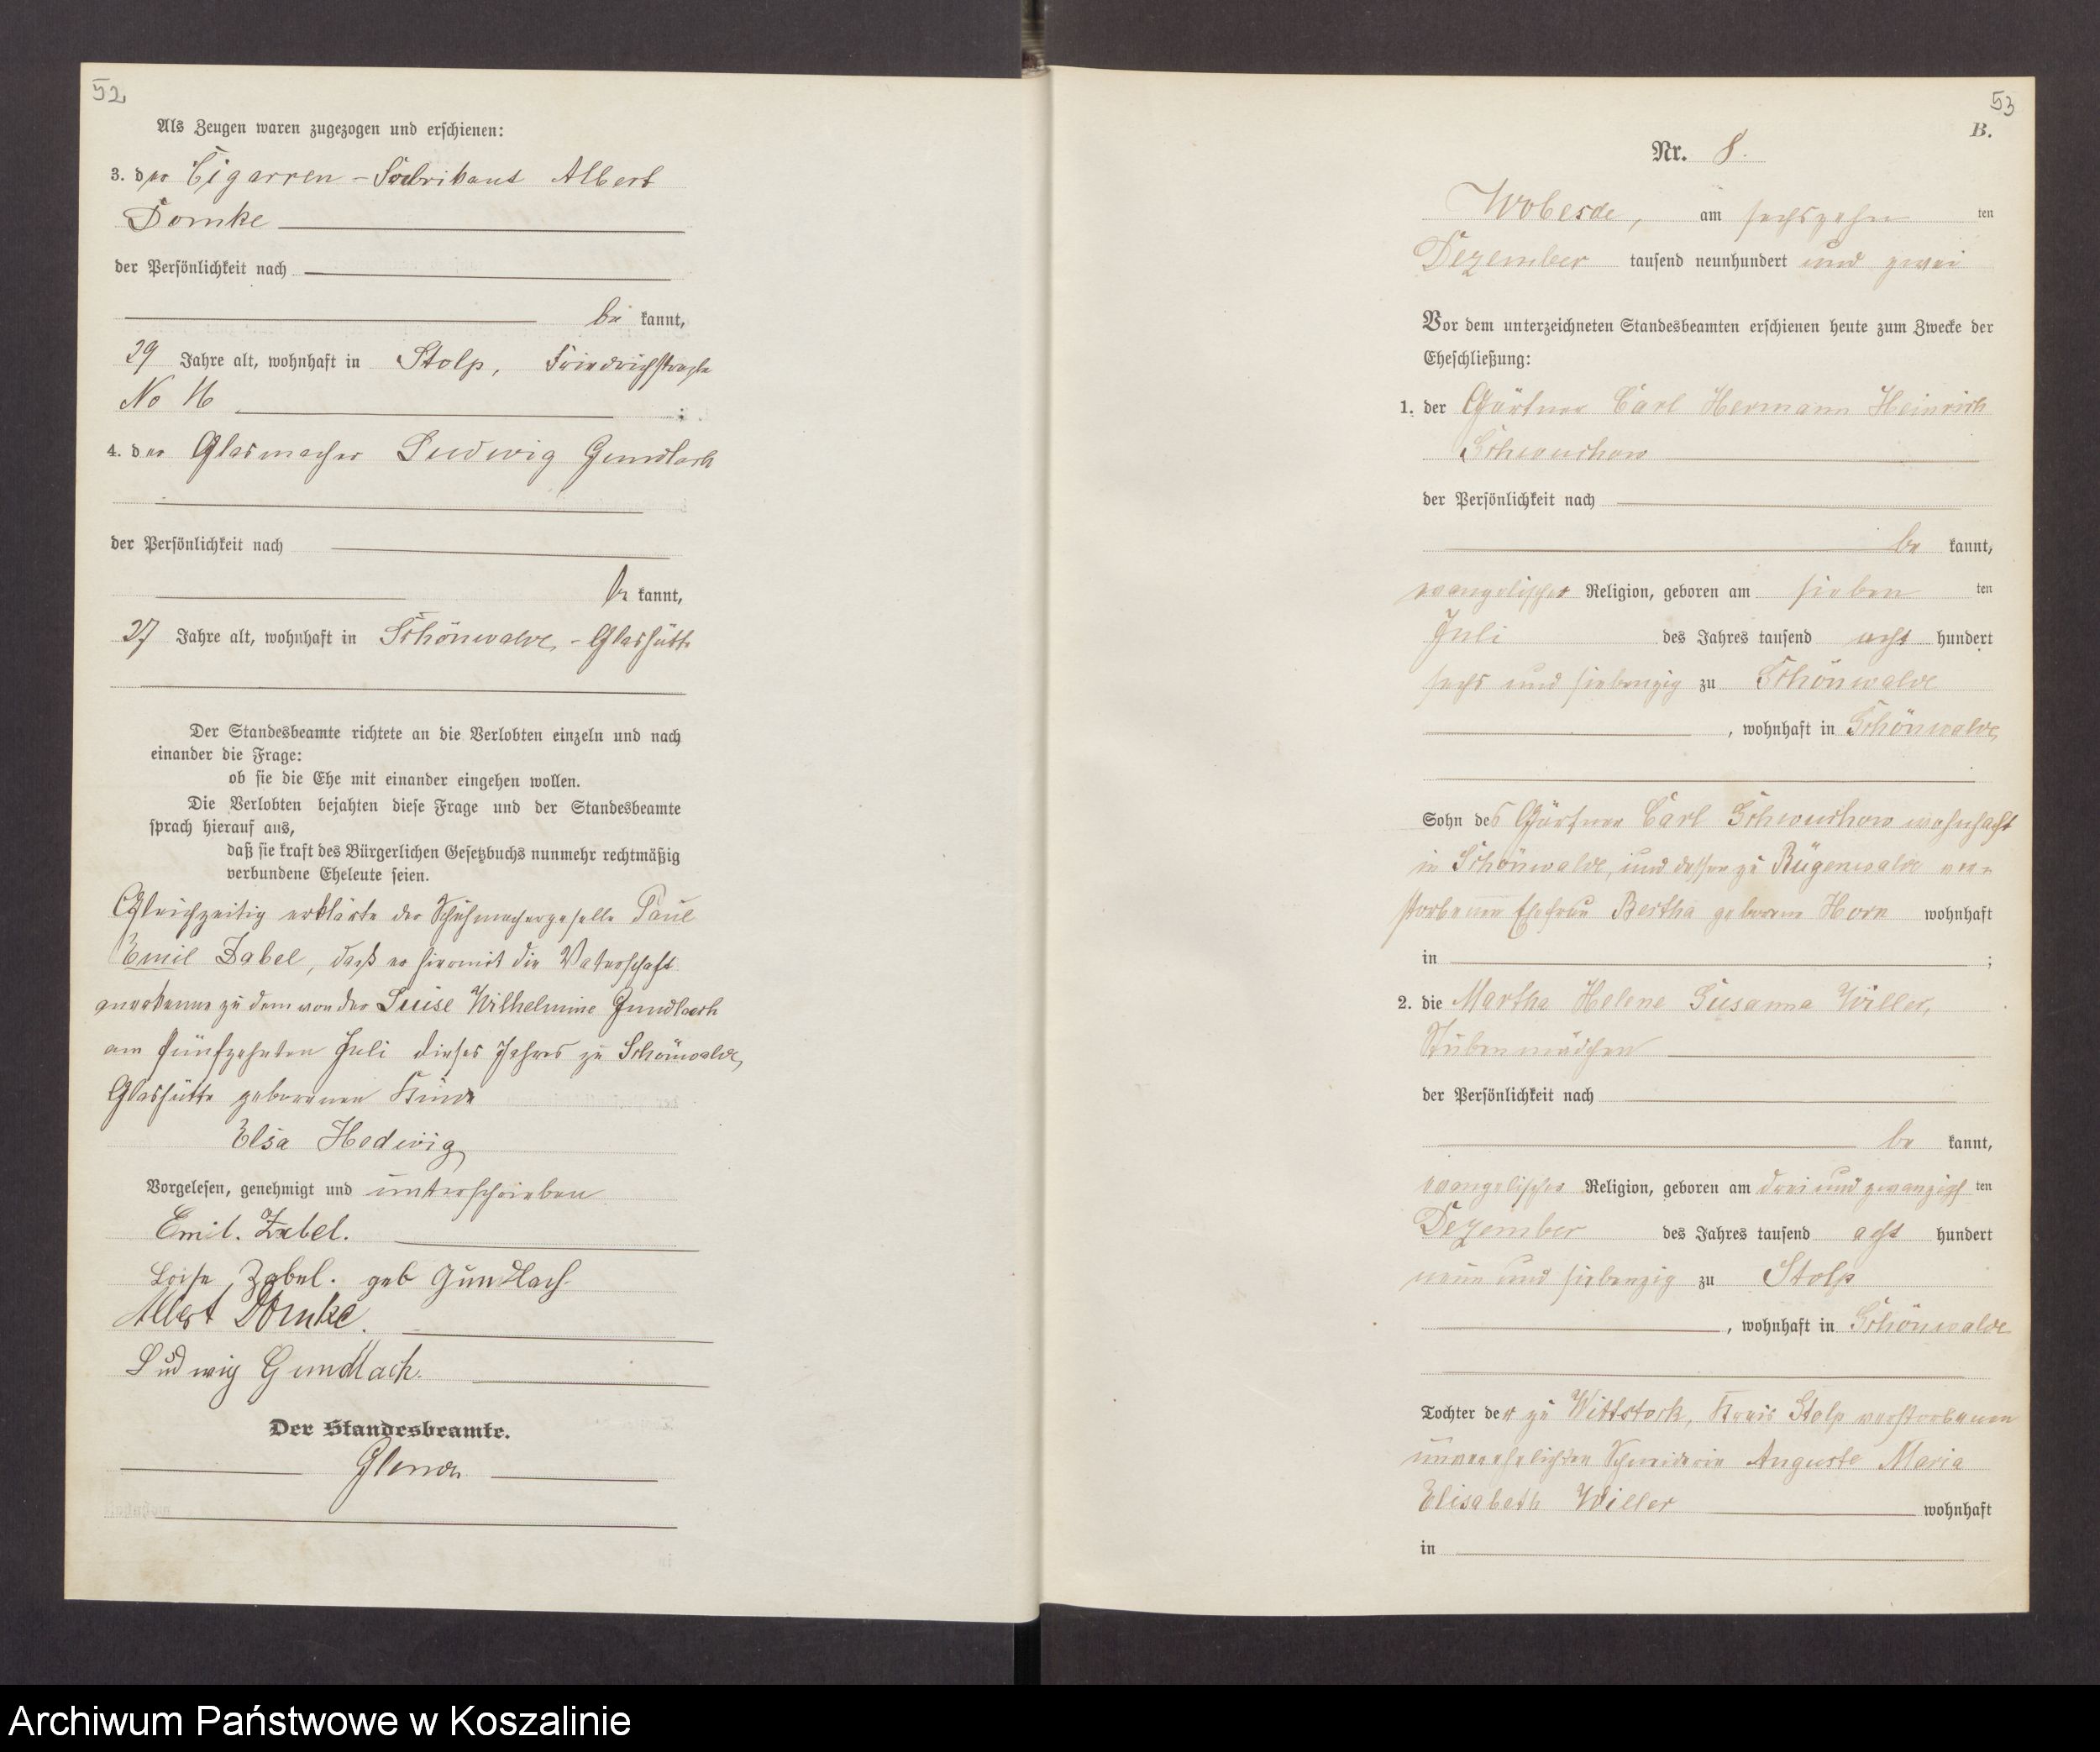 52
Als Zeugen waren zugezogen und erschienen:
3. der Cigarren-Fabrikant Albert
Domke
der Persönlichkeit nach
be kannt,
29 Jahre alt, wohnhaft in Stolp, Friedrichstraße
No 16
4. der Glasmacher Ludwig Gundlach
der Persönlichkeit nach
be kannt,
27 Jahre alt, wohnhaft in Schönwalde-Glashütte
Der Standesbeamte richtete an die Verlobten einzeln und nach
einander die Frage:
ob sie die Ehe mit einander eingehen wollen.
Die Verlobten bejahten diese Frage und der Standesbeamte
sprach hierauf aus,
daß sie kraft des Bürgerlichen Gesetzbuchs nunmehr rechtmäßig
verbundene Eheleute seien.
Gleichzeitig erklärte der Schuhmachergeselle Paul
Emil Zabel, daß er hiermit die Vaterschaft
anerkenne zu dem von der Luise Wilhelmine Gundlach
am fünfzehnten Juli dieses Jahres zu Schönwalde,
Glashütte geborenen Kinde
Elsa Hedwig
Vorgelesen, genehmigt und unterschrieben
Emil. Zabel.
Zabel. geb Gundlach
Albert Domke.
Ludwig Gundlach.
Der Standesbeamte.
53
B.
Nr. 8.
Wobesde, am sechszehn ten
Dezember tausend neunhundert und zwei
Vor dem unterzeichneten Standesbeamten erschienen heute zum Zwecke der
Eheschließung:
1. der Gärtner Carl Hermann Heinrich
Schwuchow
der Persönlichkeit nach
be kannt,
evangelischer Religion, geboren am sieben ten
Juli des Jahres tausend acht hundert
sechs und siebenzig zu Schönwalde
, wohnhaft in Schönwalde
Sohn des Gärtner Carl Schwuchow wohnhaft
in Schönwalde, und dessen zu Rügenwalde ver-
storbenen Ehefrau Bertha geborene Horn wohnhaft
in ;
2. die Martha Helene Susanna Willer,
Stubenmädchen
der Persönlichkeit nach
be kannt,
evangelischer Religion, geboren am drei und zwanzigs ten
Dezember des Jahres tausend acht hundert
neun und siebenzig zu Stolp
, wohnhaft in Schönwalde
Tochter der zu Wittstock, Kreis Stolp verstorbenen
unverehelichten Schneiderin Auguste Maria
Elisabeth Willer wohnhaft
in
Archiwum Państwowe w Koszalinie